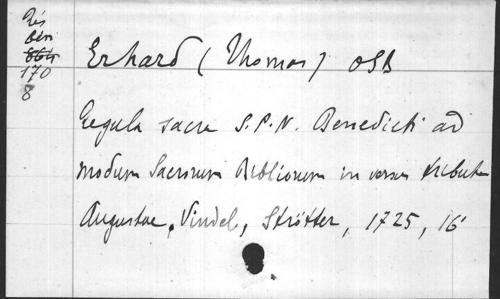 Dis
Ben
170
8
Erhard (Thomas) OSB
Regula sacra S.P.N. Benedicti ad
modum Sacrorum Bibliorum in versus tributa
Augustae, Vindel, Strötter, 1725, 16°